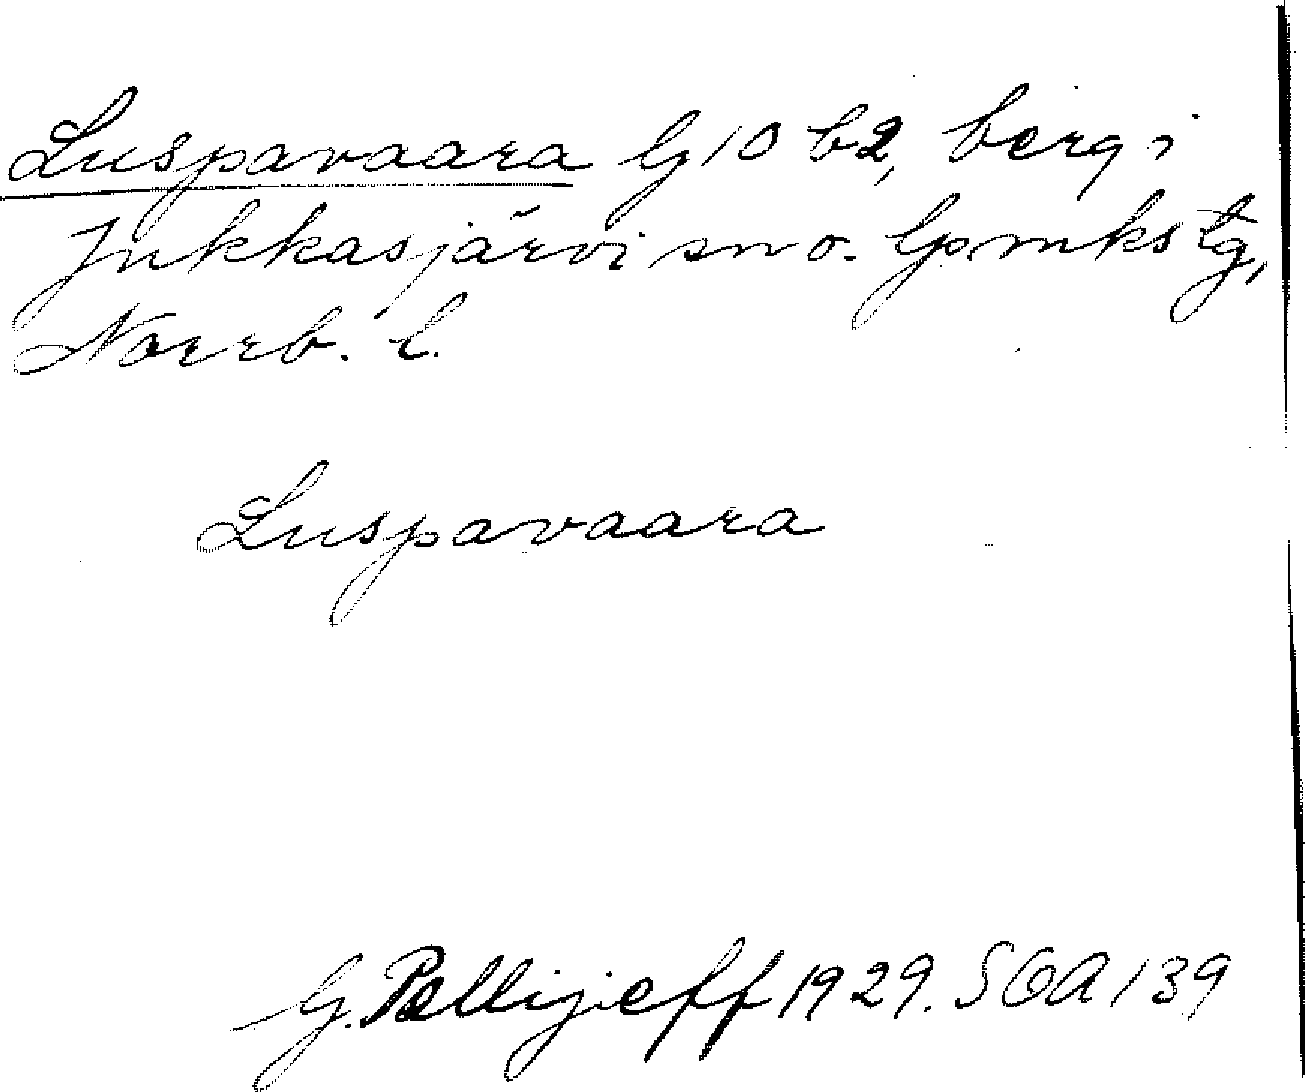 Luspavaara G10 b2, berg i
Jukkasjärvi sn o. lpmkstg,
Norrb. l.
Luspavaara
G. Pellijeff 1929. SOA 139